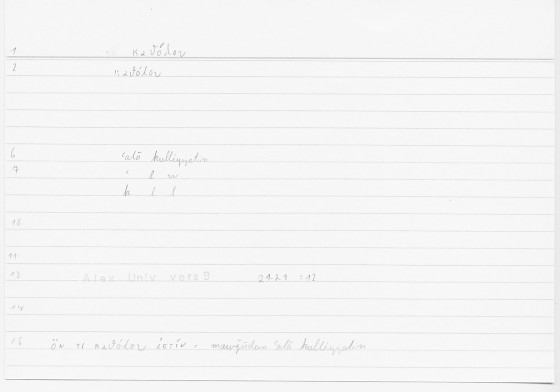 1 καθόλου
2 καθόλου
6 ʿalā kulliyyatin
7 ʿ l w
k l l
10
11
13 Alex Univ versB
14
15 ὄν τι καθόλου ἐστίν = mawǧūdun ʿalā kulliyyatin